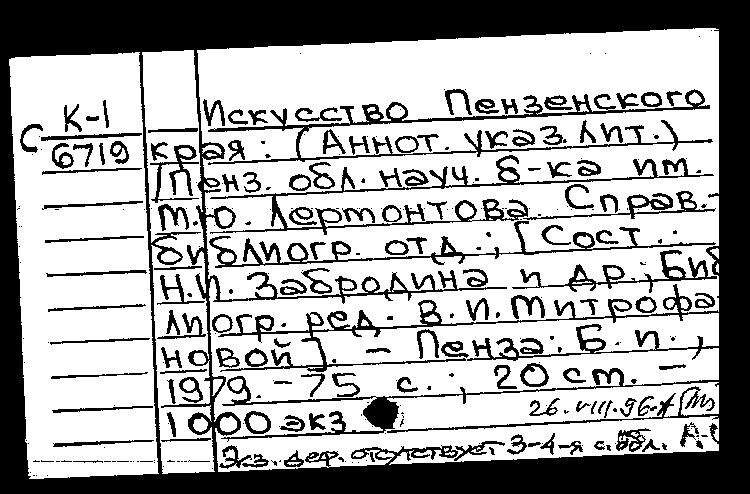 К-1
С 6719
Искусство Пензенского
края: (Аннот. указ. лит.)
/Пенз. обл. науч. б-ка им.
М.Ю. Лермонтова. Справ.-
библиогр. отд.; [Сост.:
Н.И. Забродина и др.; Биб
лиогр. ред. В.И. Митрофа
новой]. – Пенза: Б.и.,
1979. – 75 с.; 20 cm. –
1000 экз.
26.VIII.96.
Экз. деф. отсутствует 3-4-я с. обл.